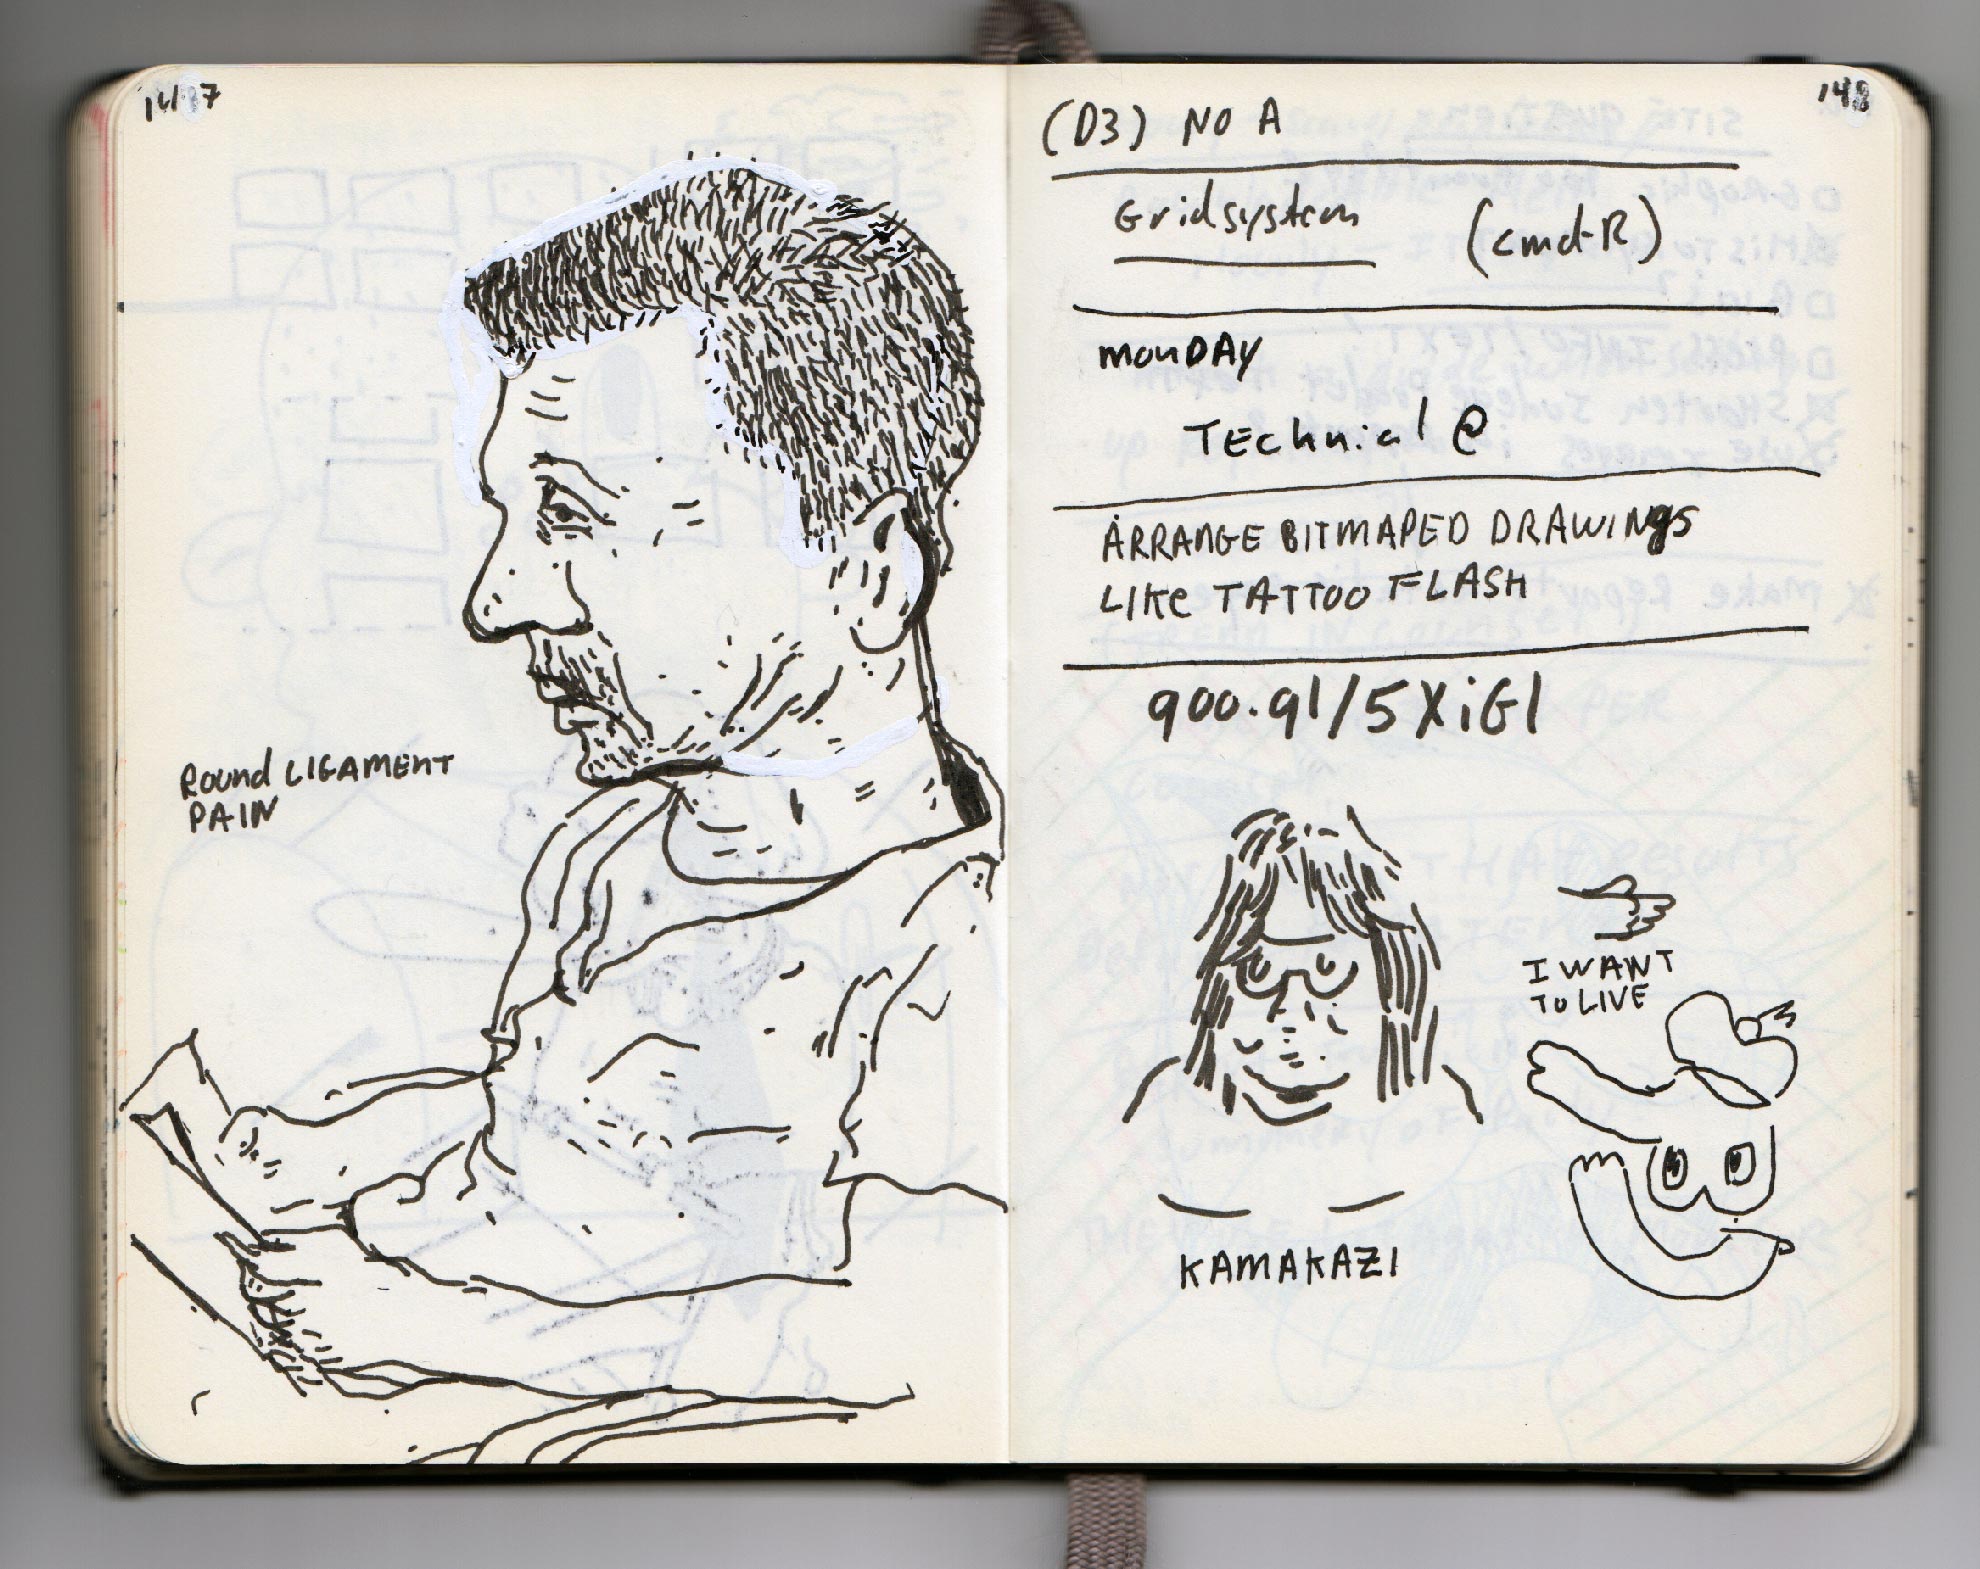 147
ROUND LIGAMENT
PAIN
148
(D3) NO A
Gridsystem (cmd-R)
MONDAY
TEchnial @
ARRANGE BITMAPED DRAWINGS
LIKE TATTOO FLASH
900.gl/5XiG1
I WANT
TO LIVE
KAMAKAZI